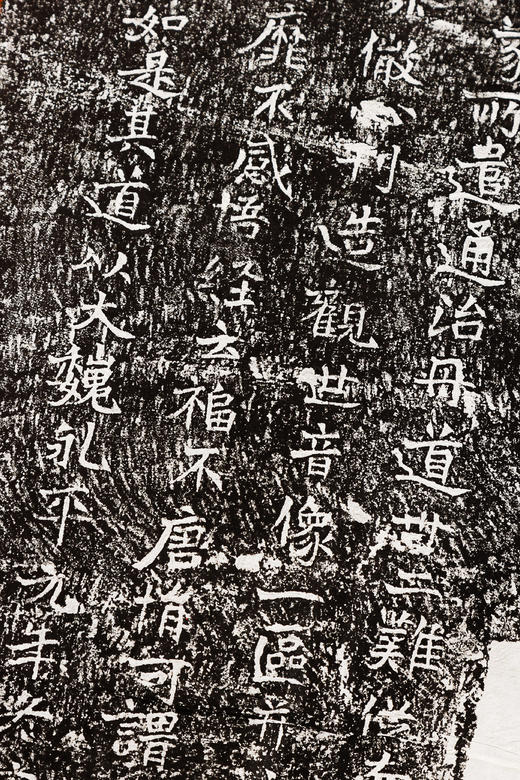 所遣通治毋道二難
刊造觀世音像一區并
靡不感悟経云福不唐捐可謂
如是其道以大魏永平元年